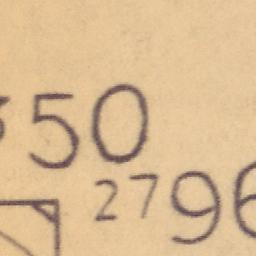 50
2796